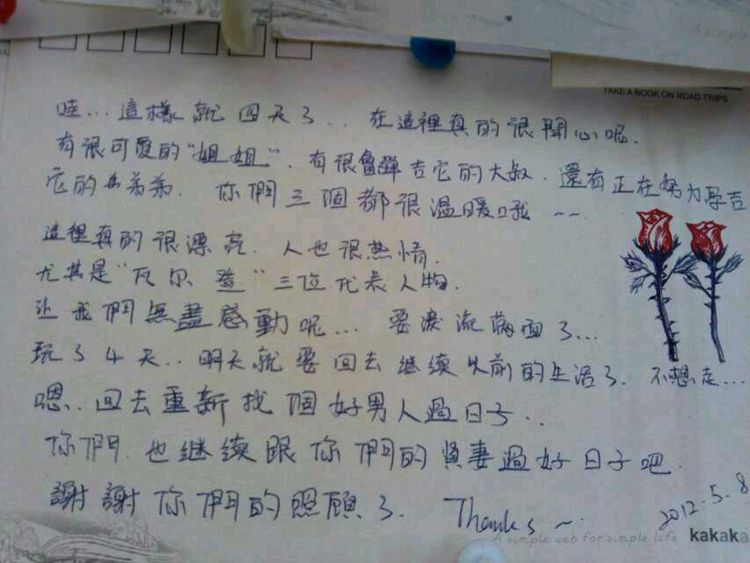 A simple
TAKE A BOOK ON ROAD TRIPS
哇...這樣就四天了...在這裡真的很開心呢.
有很可愛的"姐姐".有很會彈吉它的大叔.還有正在努力學吉
它的弟弟.你們三個都很溫暖哦~~
這裡真的很漂亮.人也很熱情.
尤其是"瓦尔登"三位代表人物.
让我們無盡感動呢...要淚流滿面了...
玩了4天..明天就要回去继续以前的生活了.不想走...
嗯.回去重新找個好男人過日子..
你們.也继续跟你們的賢妻過好日子吧.
謝謝你們的照顧了. Thanks ~ 2012.5.8
A simple web for simple life kakaka